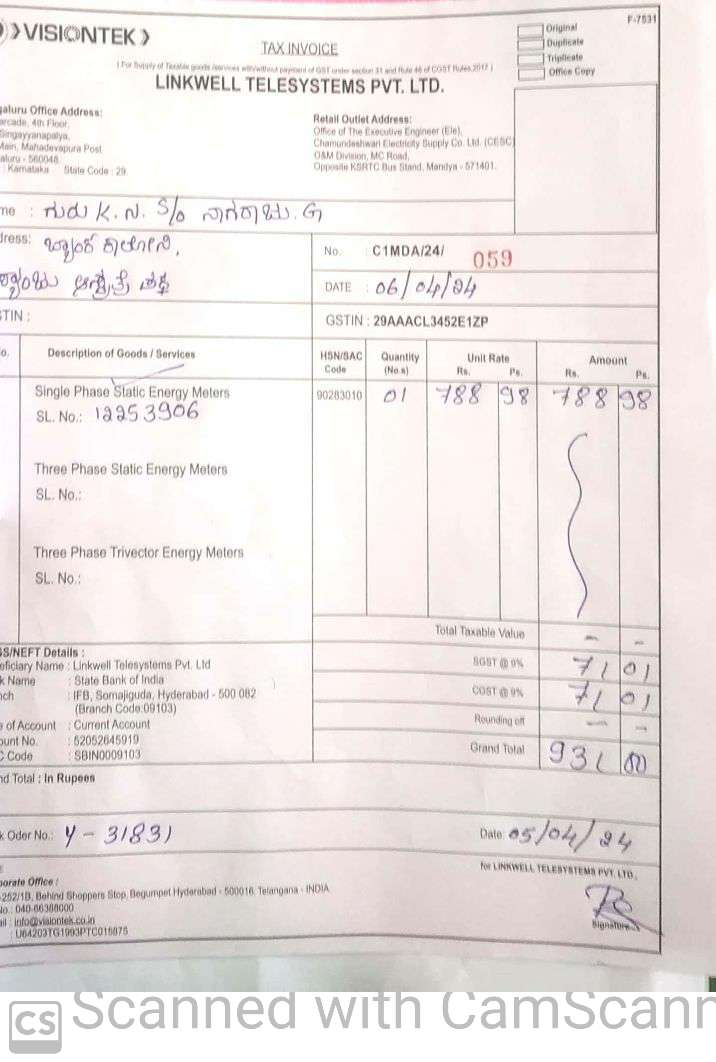 VISIONTEK
F-7531
Original
Duplicate
Triplicate
Office Copy
TAX INVOICE
( For Supply of Taxable goods /services with/without payment of GST under section 31 and Rule 46 of CGST Rules 2017 )
LINKWELL TELESYSTEMS PVT. LTD.
galuru Office Address:
arcade, 4th Floor,
Singayyanapalya,
Main, Mahadevapura Post
aluru - 560048.
: Karnataka State Code : 29
Retail Outlet Address:
Office of The Executive Engineer (Ele),
Chamundeshwari Electricity Supply Co. Ltd. (CESC)
O&M Division, MC Road,
Opposite KSRTC Bus Stand, Mandya - 571401.
me : ಗುರು K. N. S/o ನಾಗರಾಜು. G
dress: ಬ್ಯಾಂಕ್ ಕಾಲೋನಿ,
No. : C1MDA/24/ 059
DATE : 06/04/24
STIN :
GSTIN : 29AAACL3452E1ZP
o. Description of Goods / Services HSN/SAC Code Quantity (No.s) Unit Rate Rs. Ps. Amount Rs. Ps.
Single Phase Static Energy Meters 90283010 01 788 98 788 98
SL. No.: 12253906
Three Phase Static Energy Meters
SL. No.:
Three Phase Trivector Energy Meters
SL. No.:
Total Taxable Value - -
SGST @ 9% 71 01
CGST @ 9% 71 01
Rounding off - -
Grand Total 931 00
GS/NEFT Details :
eficiary Name : Linkwell Telesystems Pvt. Ltd
k Name : State Bank of India
nch : IFB, Somajiguda, Hyderabad - 500 082
(Branch Code:09103)
e of Account : Current Account
ount No. : 52052645919
C Code : SBIN0009103
nd Total : In Rupees
k Oder No.: Y - 31831
Date: 05/04/24
for LINKWELL TELESYSTEMS PVT. LTD.,
Signature
porate Office :
-252/1B, Behind Shoppers Stop, Begumpet Hyderabad - 500016, Telangana - INDIA
No : 040-66388000
ail : info@visiontek.co.in
: U64203TG1993PTC015875
CS Scanned with CamScann